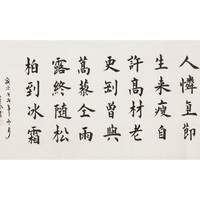 人憐直節
生来瘦自
許高材老
更剛曾與
蒿藜仝雨
露終隨松
柏到冰霜